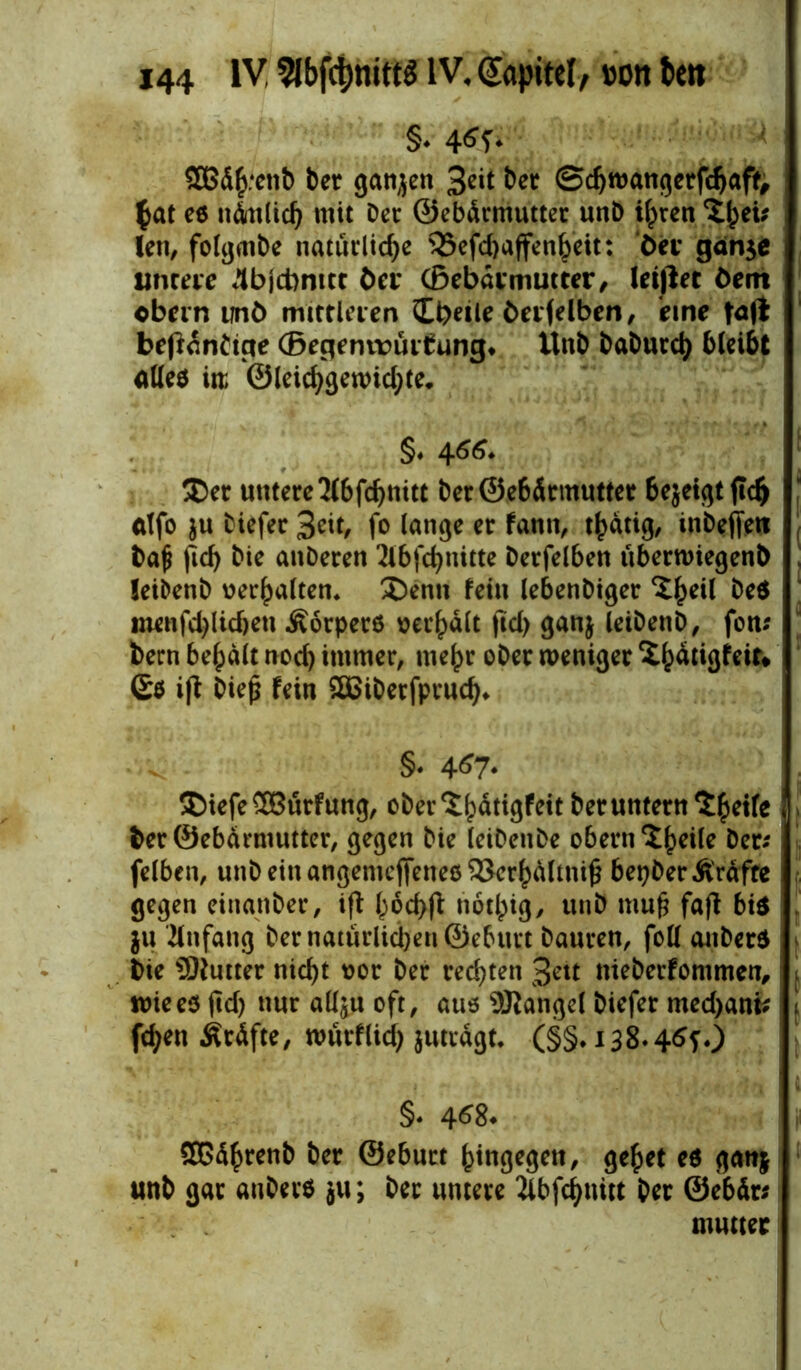 144 IV. Abschnitts IV. Capitel, von den
§. 465.
Während der ganzen Zeit der Schwangerschaft,
hat es nämlich mit der Gebärmutter und ihren Thei-
len, folgende natürliche Beschaffenheit: der ganze
untere Abschnitt der Gebärmutter, leistet dem
obern und mittleren Theile derselben, eine fast
beständige Gegenwürkung. Und dadurch bleibt
alles im Gleichgewichte.
§. 466.
Der untere Abschnitt der Gebärmutter bezeigt sich
also zu dieser Zeit, so lange er kann, thätig, indessen
daß sich die anderen Abschnitte derselben überwiegend
leidend verhalten. Denn kein lebendiger Theil des
menschlichen Körpers verhält sich ganz leidend, son-
dern behält noch immer, mehr oder weniger Thätigkeit.
Es ist dieß kein Widerspruch.
§. 467.
Diese Würkung, oder Thätigkeit der untern Theile
der Gebärmutter, gegen die leidende obern Theile der-
selben, und ein angemessenes Verhältniß beyder Kräfte
gegen einander, ist höchst nöthig, und muß fast bis
zu Anfang der natürlichen Geburt dauren, soll anders
die Mutter nicht vor der rechten Zeit niederkommen,
wie es sich nur allzu oft, aus Mangel dieser mechani-
schen Kräfte, würklich zuträgt. (§§. 138. 465.)
§. 468.
Während der Geburt hingegen, gehet es ganz
und gar anders zu; der untere Abschnitt der Gebär-
mutter